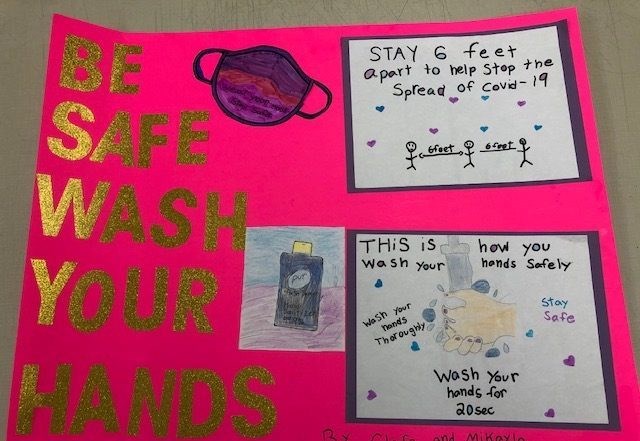 BE
SAFE
WASH
YOUR
HANDS
STAY 6 feet
apart to help stop the
Spread of Covid-19
6feet
6feet
pur
THIS is how you
wash your hands Safely
Wash Your
hands
Thoroughly
Stay
Safe
Wash Your
hands for
20sec
and Mikayla